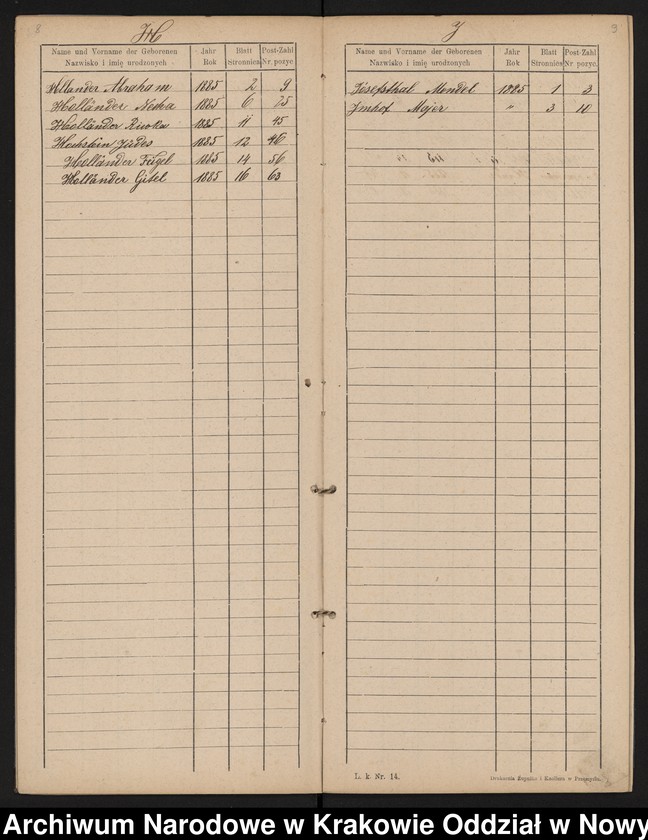 8
H
Name und Vorname der Geborenen Jahr Blatt Post-Zahl
Nazwisko i imię urodzonych Rok Stronnica Nr. pozyc.
Holländer Abraham 1885 2 9
Holländer Necha 1885 6 25
Holländer Riwka 1885 11 45
Hochstein Judes 1885 12 46
Holländer Feigel 1885 14 56
Holländer Gitel 1885 16 63
J
9
Name und Vorname der Geborenen Jahr Blatt Post-Zahl
Nazwisko i imię urodzonych Rok Stronnica Nr. pozyc.
Josefsthal Mendel 1885 1 3
Imhof Majer " 3 10
L. k. Nr. 14.
Drukarnia Żupnika i Knollera w Przemyślu.
Archiwum Narodowe w Krakowie Oddział w Nowy